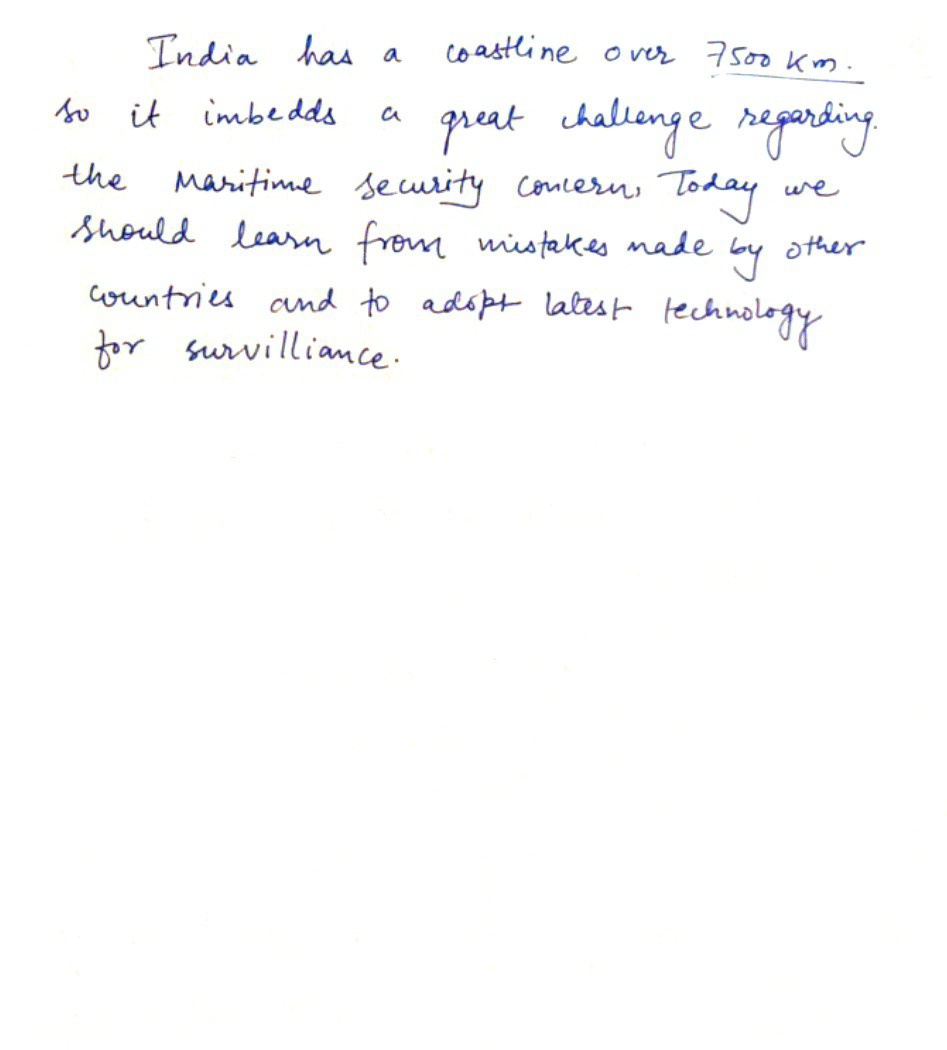 India has a coastline over 7500 Km.
so it imbedds a great challenge regarding.
the Maritime security concern, Today we
should learn from mistakes made by other
countries and to adopt latest technology
for survilliance.